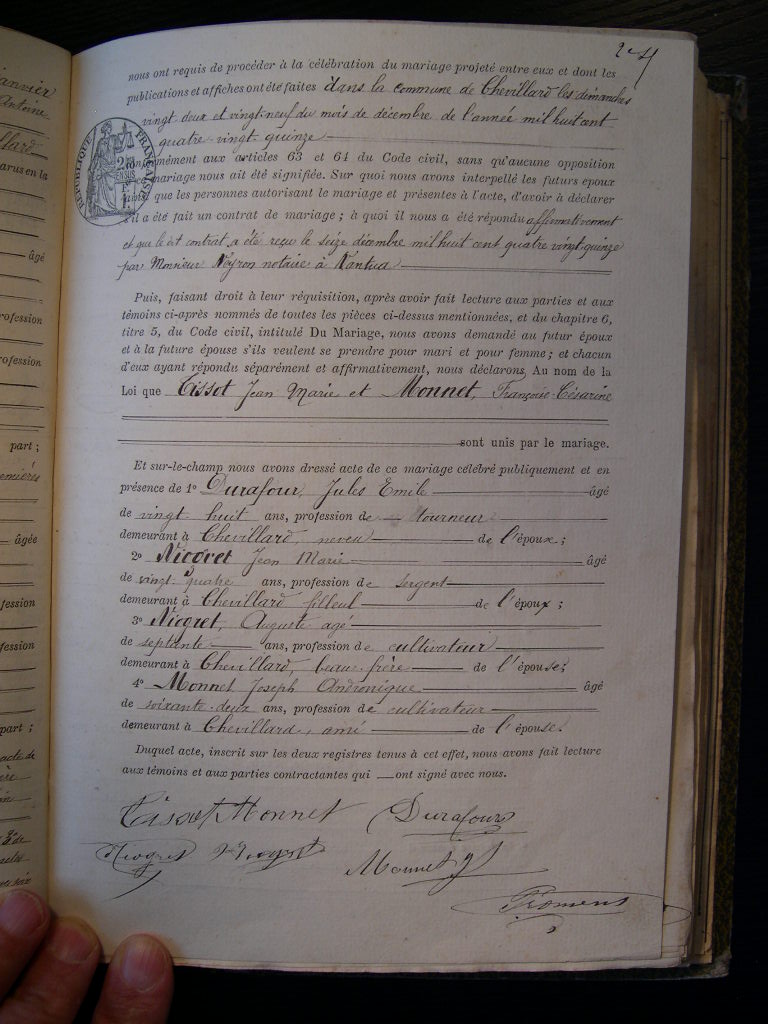 nous ont requis de procéder à la célébration du mariage projeté entre eux et dont les
publications et affiches ont été faites dans la commune de Chevillard les dimanches
vingt deux et vingt-neuf du mois de décembre de l'année mil huit cent
quatre-vingt-quinze
RÉPUBLIQUE FRANÇAISE
mément aux articles 63 et 64 du Code civil, sans qu'aucune opposition
mariage nous ait été signifiée. Sur quoi nous avons interpellé les futurs époux
que les personnes autorisant le mariage et présentes à l'acte, d'avoir à déclarer
s'il a été fait un contrat de mariage ; à quoi il nous a été répondu affirmativement
et que le dit contrat a été reçu le seize décembre mil huit cent quatre vingt-quinze
par Monsieur Neyron notaire à Nantua
Puis, faisant droit à leur réquisition, après avoir fait lecture aux parties et aux
témoins ci-après nommés de toutes les pièces ci-dessus mentionnées, et du chapitre 6,
titre 5, du Code civil, intitulé Du Mariage, nous avons demandé au futur époux
et à la future épouse s'ils veulent se prendre pour mari et pour femme ; et chacun
d'eux ayant répondu séparément et affirmativement, nous déclarons, Au nom de la
Loi que Tissot Jean Marie et Monnet, Françoise-Césarine
sont unis par le mariage.
Et sur-le-champ nous avons dressé acte de ce mariage célébré publiquement et en
présence de 1o Durafour, Jules Emile âgé
de vingt huit ans, profession de tourneur
demeurant à Chevillard, neveu de l'époux ;
2o Nicoret Jean Marie âgé
de vingt-quatre ans, profession de sergent
demeurant à Chevillard filleul de l'époux ;
3o Nicgret, Auguste agé
de septante ans, profession de cultivateur
demeurant à Chevillard, beau-frère de l'épouse ;
4o Monnet Joseph Andronique âgé
de soixante-deux ans, profession de cultivateur
demeurant à Chevillard, ami de l'épouse.
Duquel acte, inscrit sur les deux registres tenus à cet effet, nous avons fait lecture
aux témoins et aux parties contractantes qui ont signé avec nous.
Tissot Monnet Durafour
Monnet J
Froment